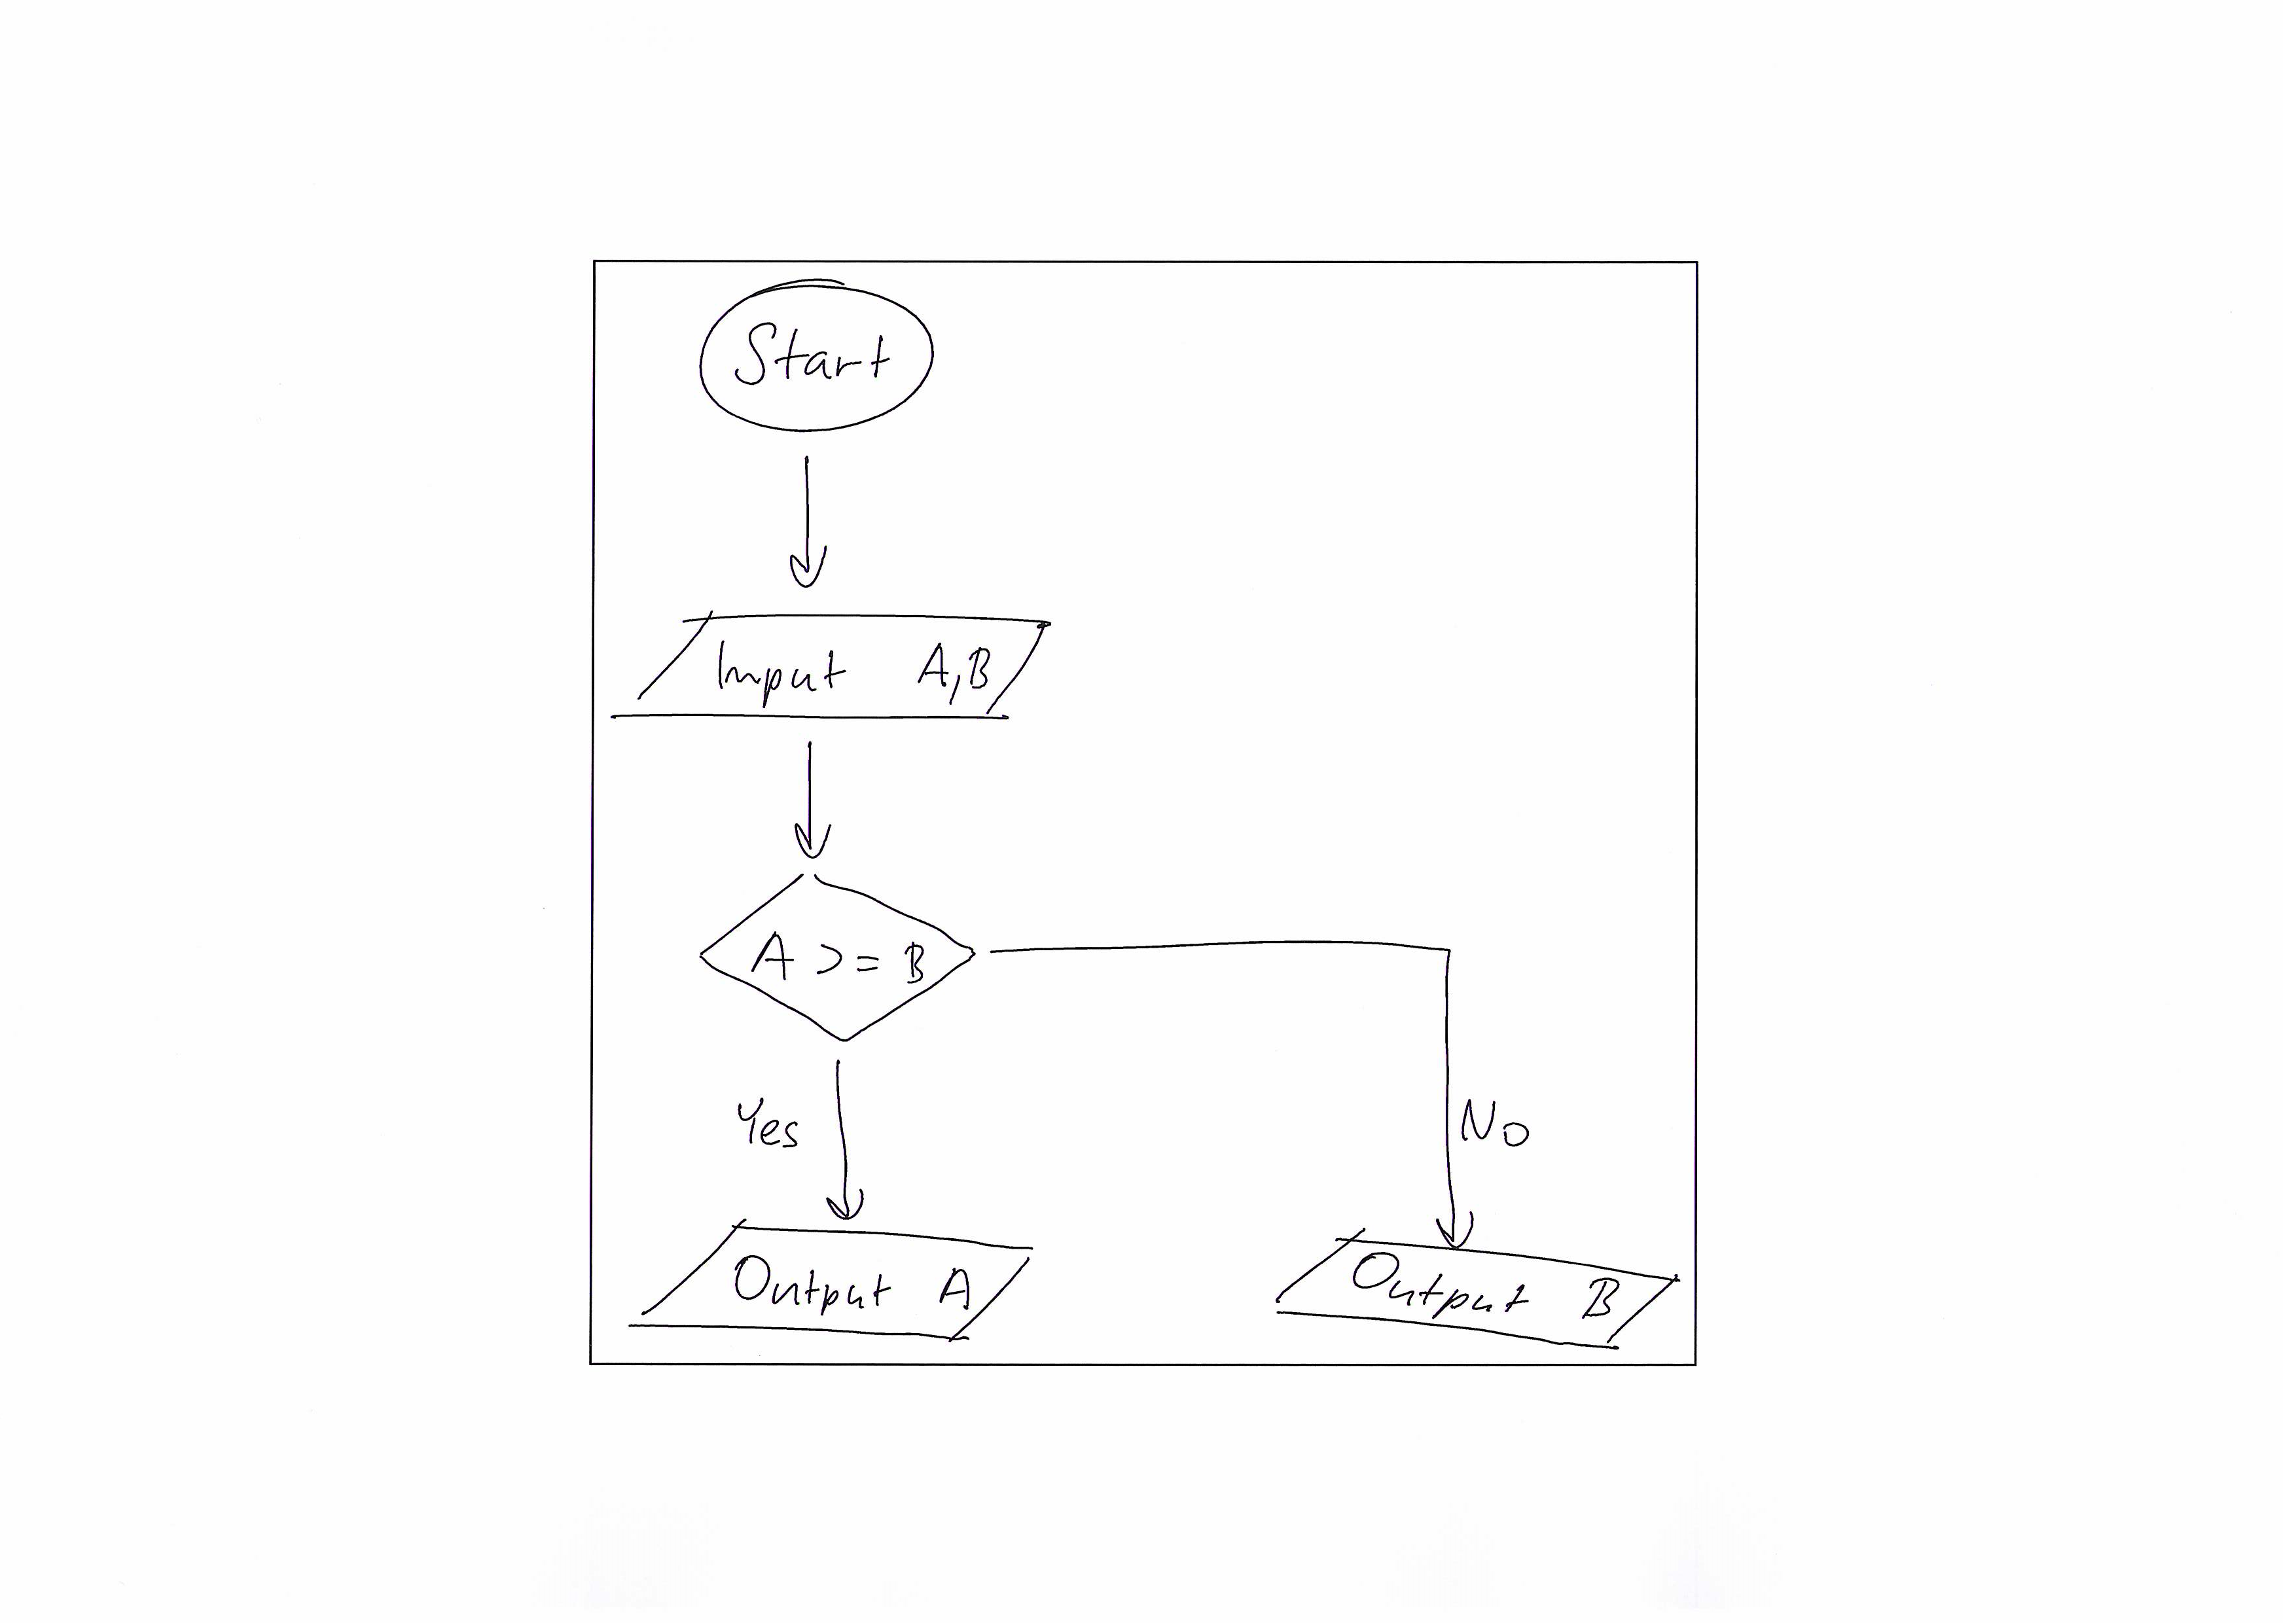 Start
Input A,B
A >= B
Yes
No
Output A
Output B